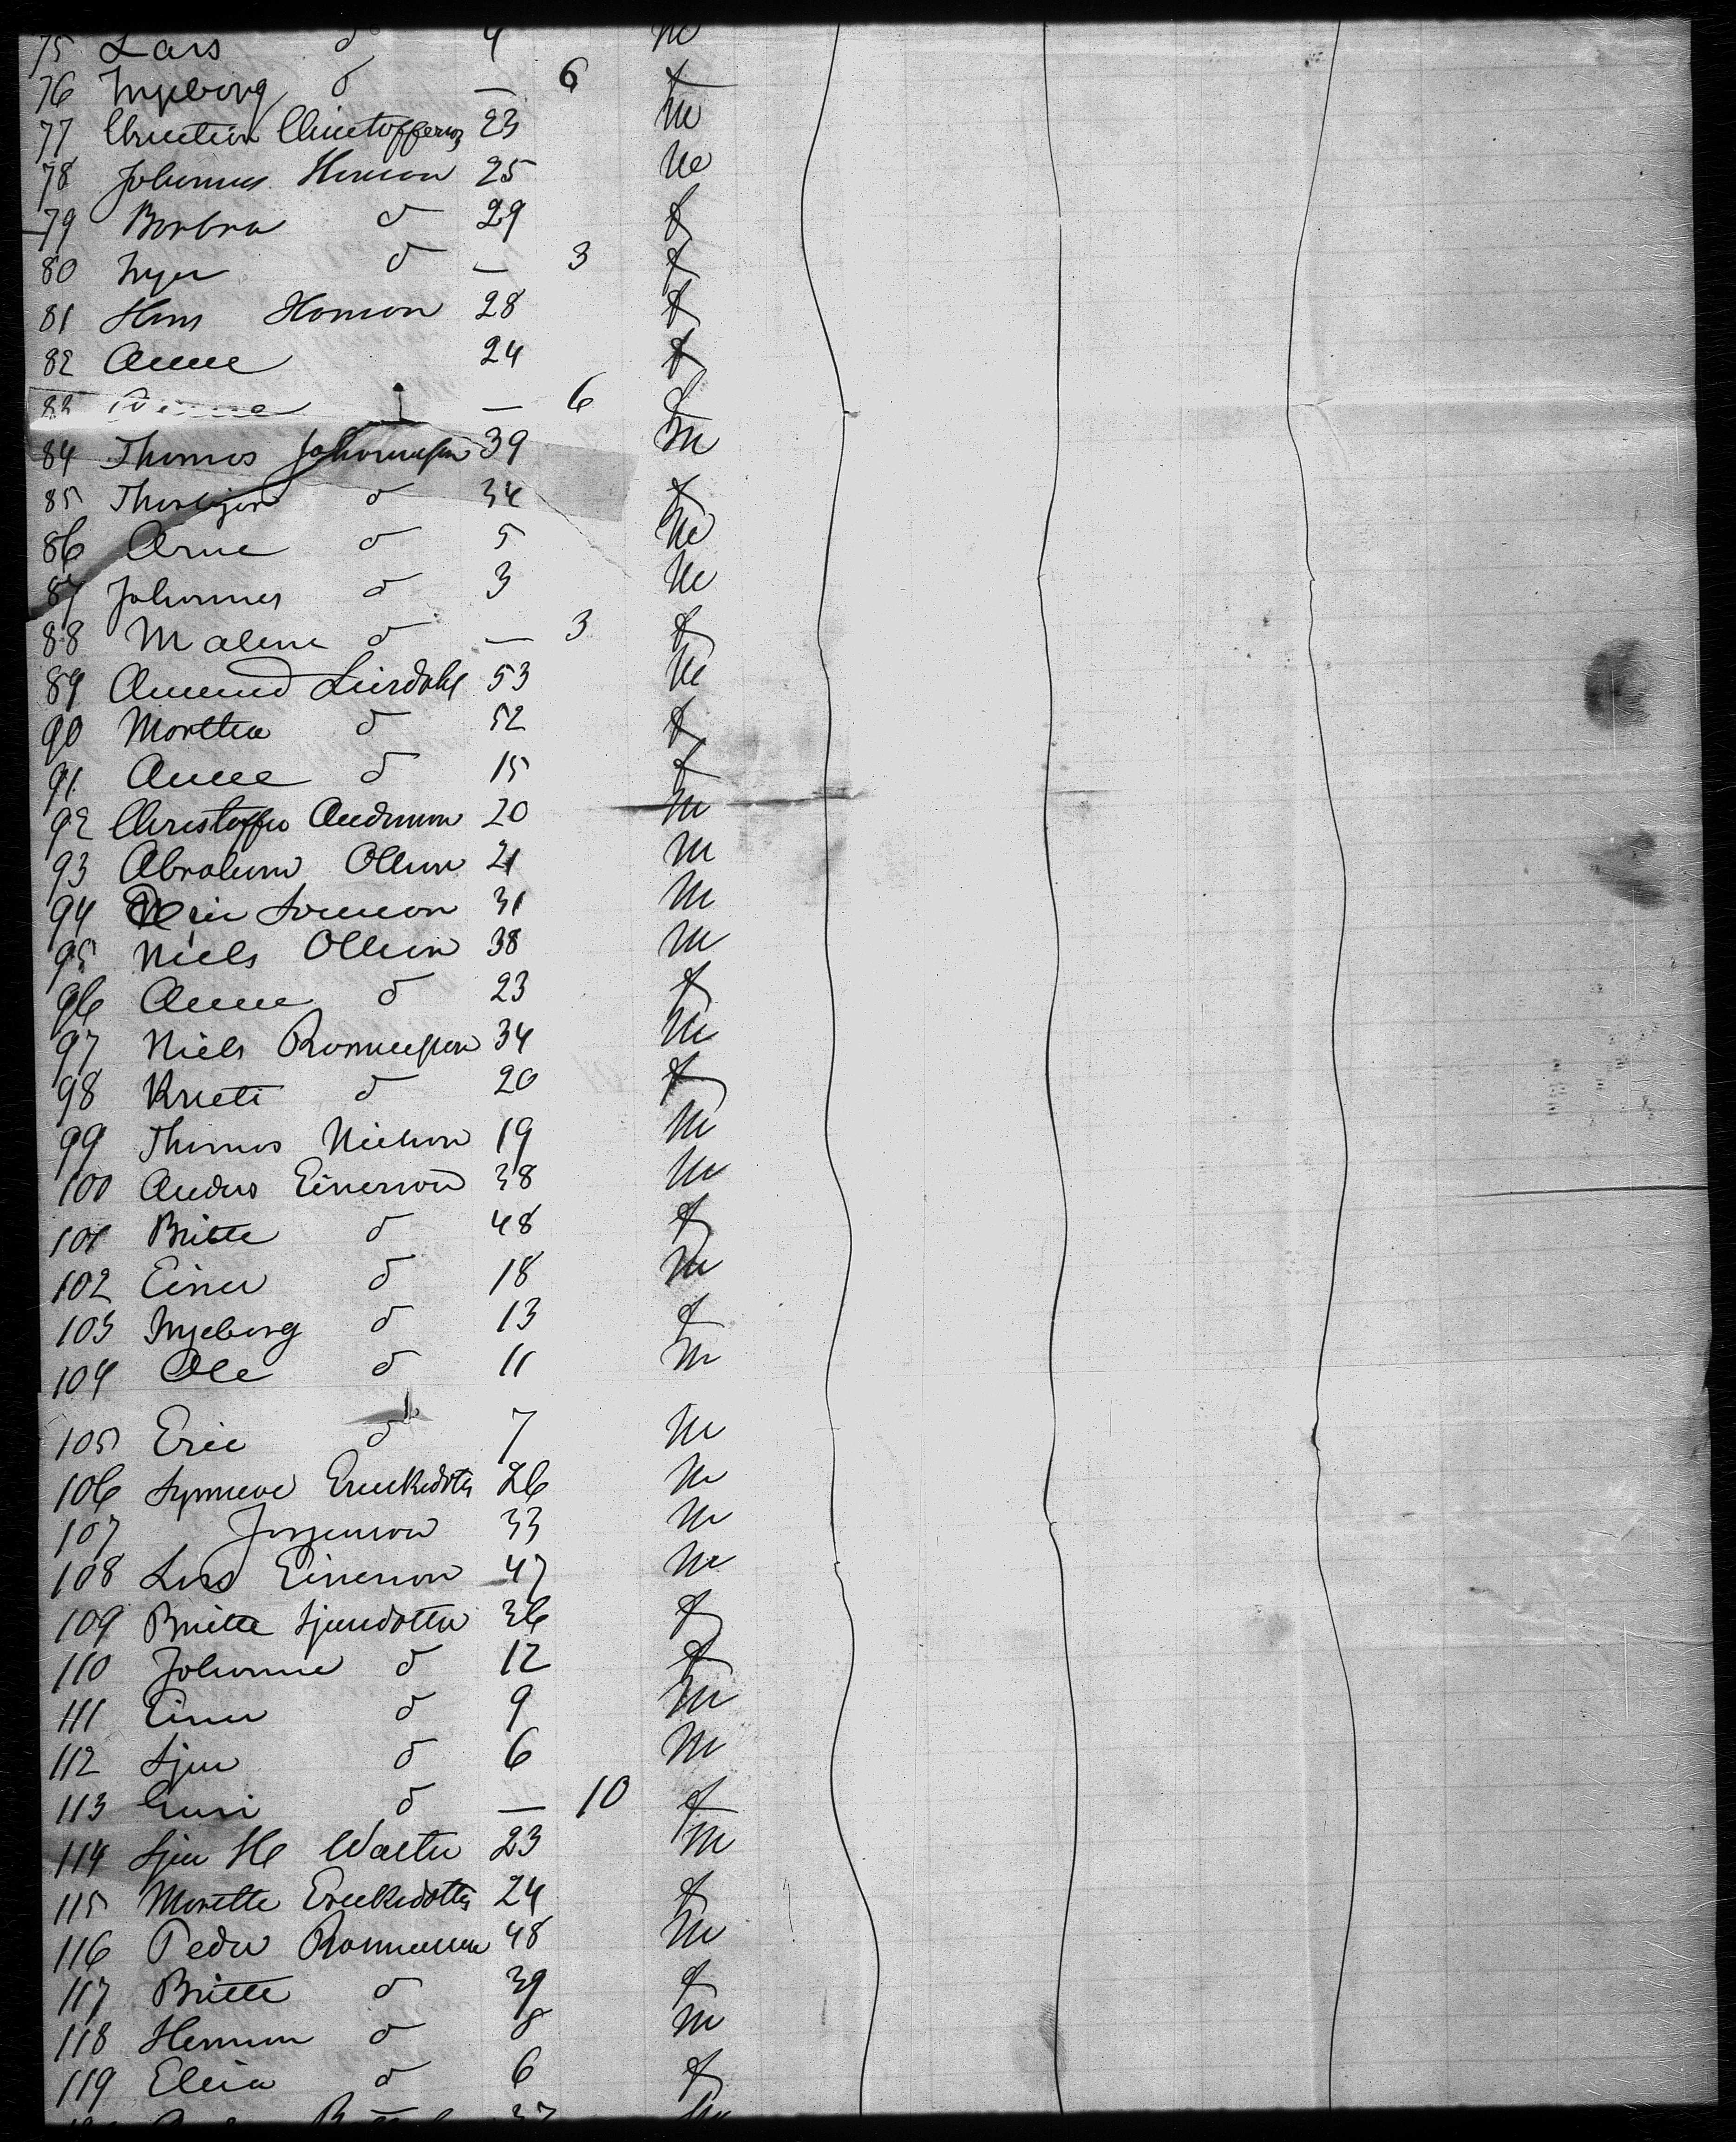 75 Lars d 4 m
76 Ingeborg d — 6 f
77 Christian Christofferson 23 m
78 Johannes Hanson 25 m
79 Barbra d 29 f
80 Inger d — 3 f
81 Hans Hanson 28 f
82 Anne 24 f
83 — 6 f
84 Thomas Johannessen 39 m
85 d 34 f
86 Arne d 5 m
87 Johannes d 3 m
88 Malene d — 3 f
89 Amund 53 m
90 Marttha d 52 f
91 Anne d 15 f
92 Christoffer Anderson 20 m
93 Abraham Olleson 21 m
94 31 m
95 Niels Olleson 38 m
96 Anne d 23 f
97 Niels Rasmussen 34 m
98 Kristi d 20 f
99 Thomas Nielson 19 m
100 Anders Einerson 38 m
101 Britte d 48 f
102 Einer d 18 m
103 Ingeborg d 13 f
104 Ole d 11 m
105 Eric d 7 m
106 Synneve Ericksdotter 26 m
107 Jorgenson 33 m
108 Lars Einerson 47 m
109 Britte Sjursdotter 36 f
110 Johanne d 12 f
111 Einer d 9 m
112 Sjur d 6 m
113 Guri d — 10 f
114 Sjur H Walter 23 m
115 Marette Ericksdotter 24 f
116 Peder Rasmussen 48 m
117 Britte d 39 f
118 Herman d 8 m
119 d 6 f
37 m